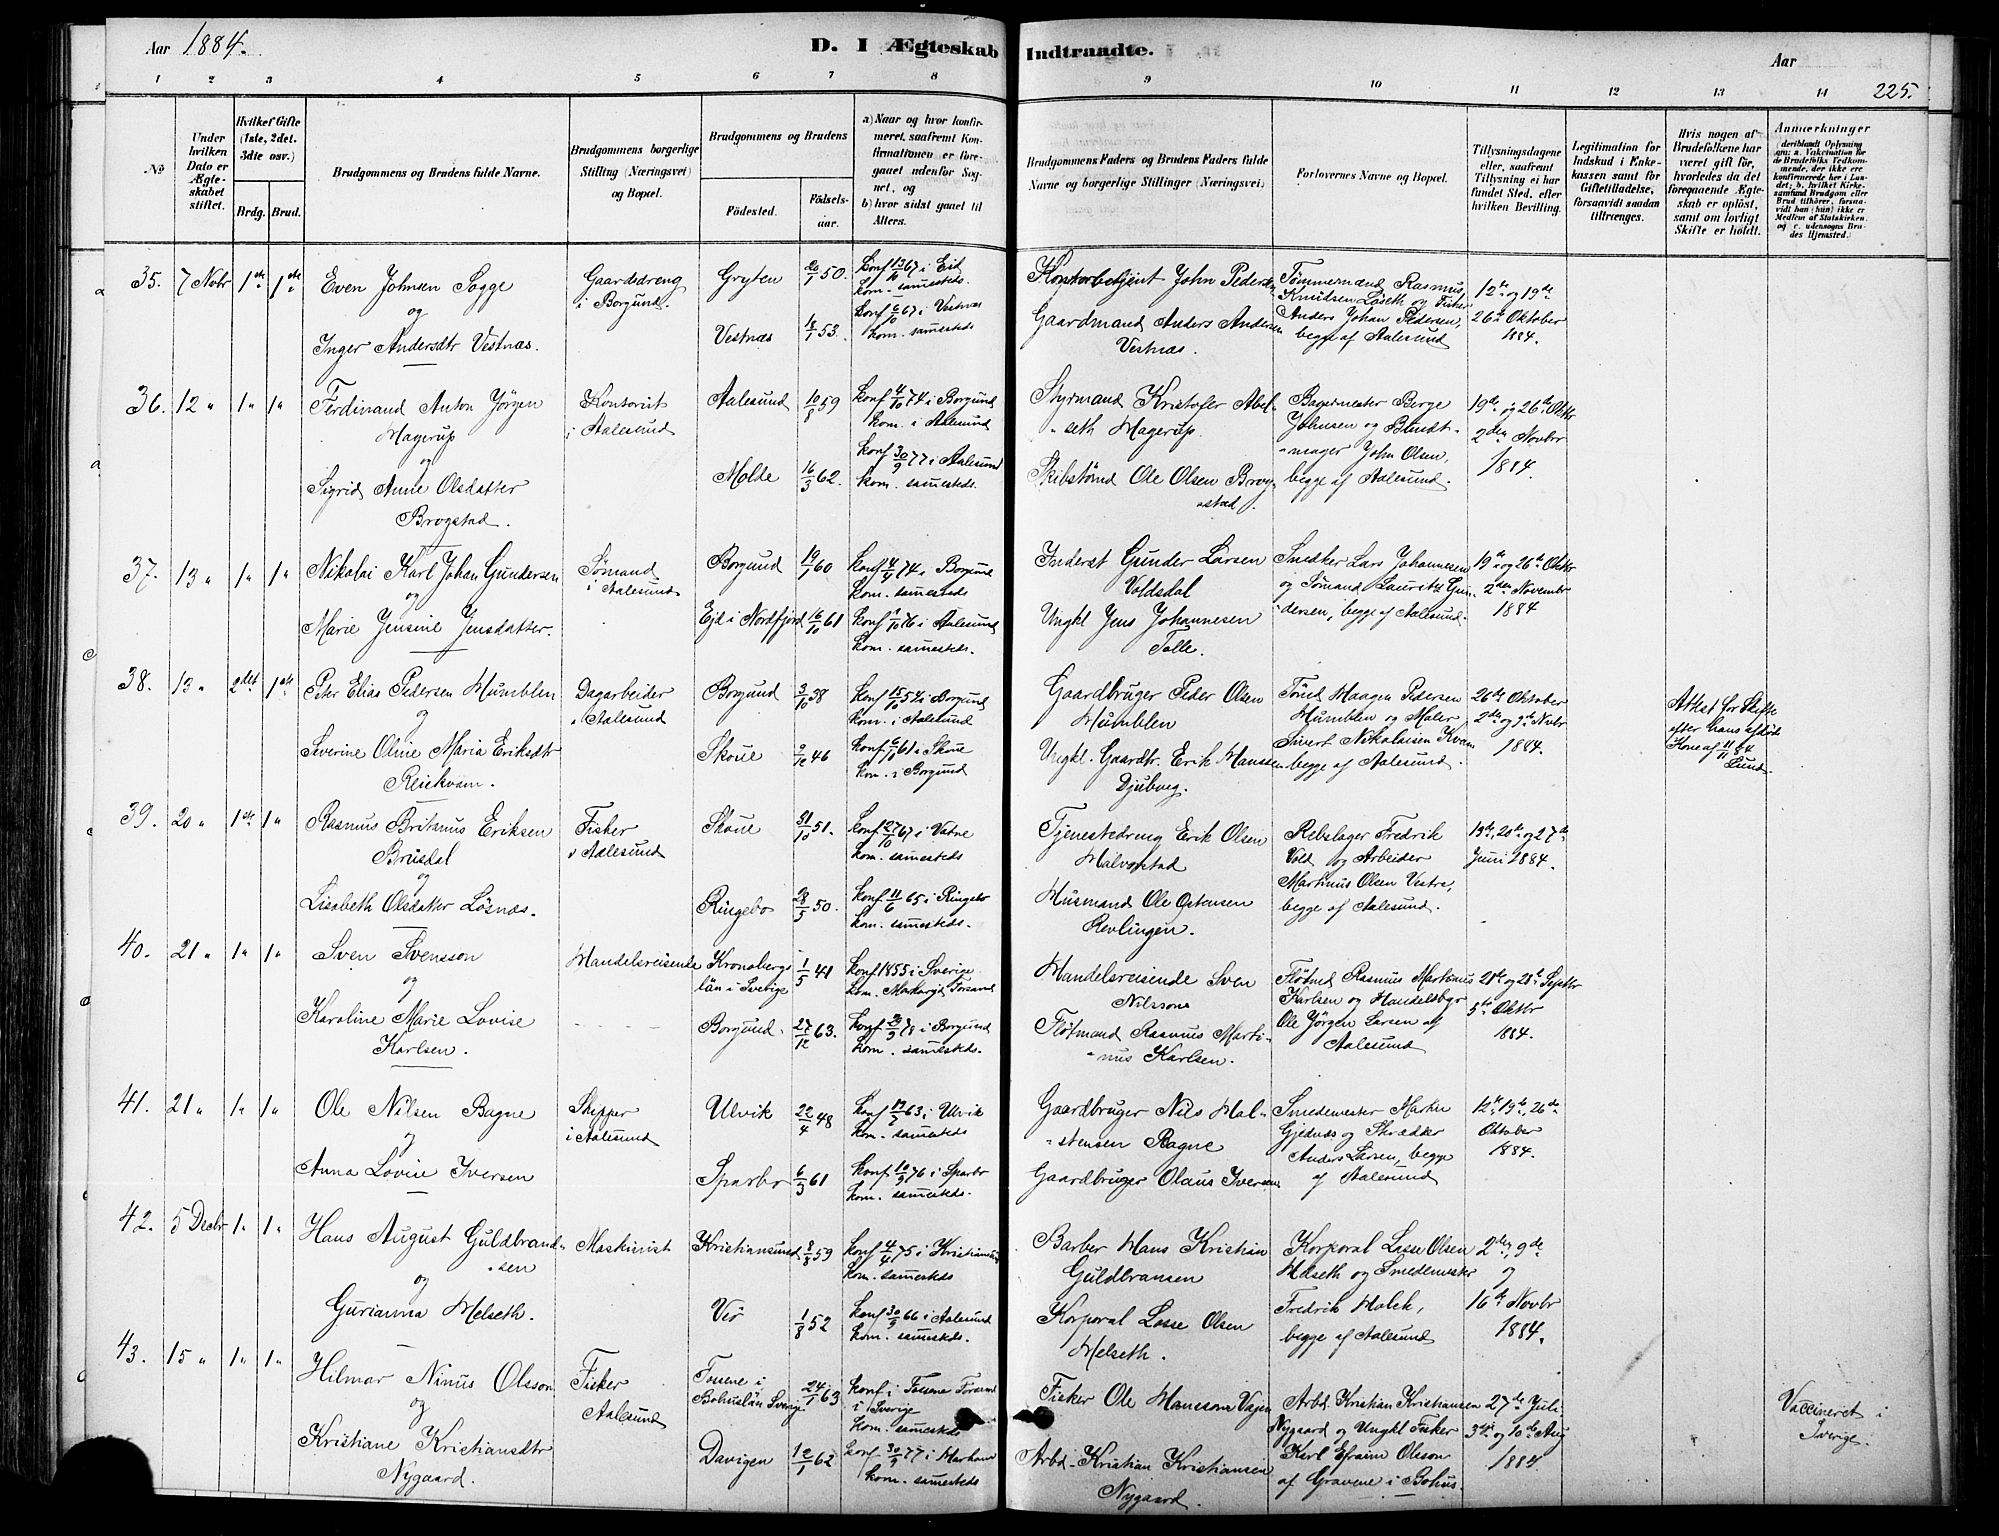 Aar 1884.
D. I Ægteskab Indtraadte.
Aar
225.
1 2 3 4 5 6 7 8 9 10 11 12 13 14
No
Under hvilken Dato er Ægteskabet stiftet.
Hvilket Gifte (1ste, 2det. 3dte osv.)
Brdg. Brud.
Brudgommens og Brudens fulde Navne.
Brudgommens borgerlige Stilling (Næringsvei) og Bopæl.
Brudgommens og Brudens
Fødested.
Fødsels-aar.
a) Naar og hvor konfirmeret, saafremt Konfirmationen er foregaaet udenfor Sognet, og
b) hvor sidst gaaet til Alters.
Brudgommens Faders og Brudens Faders fulde Navne og borgerlige Stillinger (Næringsvei)
Forlovernes Navne og Bopæl.
Tillysningsdagene eller, saafremt Tillysning ei har fundet Sted, efter hvilken Bevilling.
Legitimation for Indskud i Enkekassen samt for Giftetilladelse, forsaavidt saadan tiltrænges.
Hvis nogen af Brudefolkene har været gift før, hvorledes da det foregaaende Ægteskab er opløst, samt om lovligt Skifte er holdt.
Anmærkninger
deriblandt Oplysning om: a. Vakcination for de Brudefolks Vedkommende, der ikke ere konfirmerede her i Landet; b. hvilket Kirkesamfund Brudgom eller Brud tilhører, forsaavidt han (hun) ikke er Medlem af Statskirken, og c. udensogns Brudes Hjemsted.
35. 7 Novbr 1ste 1ste
Even Johnsen Sogge
og
Inger Andersdtr Vestnæs.
Gaarddreng
i Borgund.
Gryten 20/1 50.
Vestnæs 18/1 53.
Konf 13/10 67 i Eid
kom. samesteds.
Konf 6/10 67 i Vestnæs
kom. samesteds
Kontorbetjent John Pedersen
Gaardmand Anders Andersen
Vestnæs.
Tømmermand Rasmus
Knudsen Løseth og Fisker
Anders Johan Pedersen,
begge af Aalesund
12te og 19de
26de Oktober
1884.
36. 12 " 1 " 1 "
Ferdinand Anton Jörgen
Magerup
og
Sigrid Anne Olsdatter
Brogstad.
Kontorist
i Aalesund
Aalesund 10/8 59
Molde 16/3 62.
Konf 4/10 74 i Borgund
kom. i Aalesund
Konf 30/9 77 i Aalesund
kom. samesteds.
Styrmand Kristofer Abel-
seth Magerup.
Skibstømd Ole Olsen Brog-
stad.
Bagermester Berge
Johnsen og Bundt-
mager John Olsen,
begge af Aalesund.
19de og 26de Oktbr
2den Novbr
1884.
37. 13 " 1 " 1 "
Nikolai Karl Johan Gundersen
og
Marie Jensine Jensdatter.
Sømand
i Aalesund
Borgund 19/1 60
Ejd i Nordfjord 16/10 61
Konf 4/4 74 i Borgund
kom. samesteds
Konf 1/10 76 i Aalesund
kom. samesteds.
Inderst Gunder Larsen
Voldsdal
Ungkl Jens Johannesen
Tolle.
Snedker Lars Johannesen
og Sømand Lauritz Gun-
dersen, begge af Aalesund.
19de og 26de Oktbr
2den Novembr
1884
38. 13 " 2det 1ste
Peter Elias Pedersen Humblen
og
Severine Oline Maria Eriksdtr
Reiekvam.
Dagarbeider
i Aalesund
Borgund 3/10 38
Skoue 9/12 46
Konf 15/10 54 i Borgund
kom. i Aalesund
Konf 6/10 61 i Skoue
kom. i Borgund
Gaardbruger Peder Olsen
Humblen
Ungkl. Gaardtr. Erik Hanssen
Djubveg.
Tømd Haagen Pedersen
Humblen og Maler
Sivert Nikolaisen Kvam
begge af Aalesund.
26de Oktober
2den og 9de Novbr
1884.
Attest for Skifte
efter hans afdøde
Kone af 11/11 84
Lund.
39. 20 " 1ste 1 "
Rasmus Britanus Eriksen
Brusdal
og
Lisabeth Olsdatter Løsnæs.
Fisker
i Aalesund
Skoue 31/10 51.
Ringebo 28/5 50.
Konf 27/10 67 i Vatne
kom. samesteds
Konf 11/6 65 i Ringebo
kom. samesteds.
Tjenestedreng Erik Olsen
Halvorstad
Husmand Ole Ostensen
Revlingen.
Rebslager Fredrik
Vold og Arbeider
Martinus Olsen Vestre,
begge af Aalesund.
13de, 20de og 27de
Juni 1884.
40. 21 " 1 " 1 "
Sven Svensson
og
Karoline Marie Lovise
Karlsen.
Handelsreisende
Kronobergs
län i Sverige 1/5 41
Borgund 27/12 63.
Konf 1855 i Sverige
kom. Markaryd Forsaml
Konf 2/9 78 i Borgund
kom. samesteds.
Handelsreisende Sven
Nilssons
Fløtmand Rasmus Marti-
nus Karlsen.
Fløtmd Rasmus Martinus
Karlsen og Handelsbgr
Ole Jörgen Larsen af
Aalesund
21de og 28de Septbr
5te Oktbr
1884.
41. 21 " 1 " 1 "
Ole Nilsen Bagne
og
Anna Lovise Iversen
Skipper
i Aalesund
Ulvik 22/4 48
Sparbo 6/3 61
Konf 19/7 63 i Ulvik
kom. samesteds
Konf 10/9 76 i Sparbo
kom. samesteds.
Gaardbruger Nils Hal-
stensen Bagne
Gaardbruger Olaus Iversen
Smedemester Martin
Gjednæs og Skrædder
Anders Larsen, begge
af Aalesund
12te, 19de, 26de
Oktober
1884.
42. 5 Decbr 1 " 1 "
Hans August Guldbrand-
sen
og
Gurianna Helseth.
Maskinist
Kristiansund 8/8 59
Veø 1/8 52
Konf 4/4 75 i Kristiansund
kom. samesteds
Konf 30/9 66 i Aalesund
kom. samesteds.
Barber Hans Kristian
Guldbransen
Korporal Lasse Olsen
Helseth.
Korporal Lasse Olsen
Helseth og Smedemester
Fredrik Holck,
begge af Aalesund
2den, 9de
og
16de Novbr
1884.
43. 15 " 1 " 1 "
Hilmar Ninus Olsson
og
Kristiane Kristiansdtr
Nygaard.
Fisker
Aalesund
Tossene i
Bohuslän Sverige 24/1 63
Davigen 12/1 62
Konf i Tossene Forsaml
i Sverige
kom. samesteds
Konf 30/9 77 i
kom. samesteds
Fisker Ole Hanssons
Arbd. Kristian Kristiansen
Nygaard.
Arbd. Kristian Kristiansen
Nygaard og Ungkl Fisker
Karl Efraim Olsson
af Gravene i Bohus
27de Juli
3die og 10de Aug
1884.
Vaccineret i
Sverige.